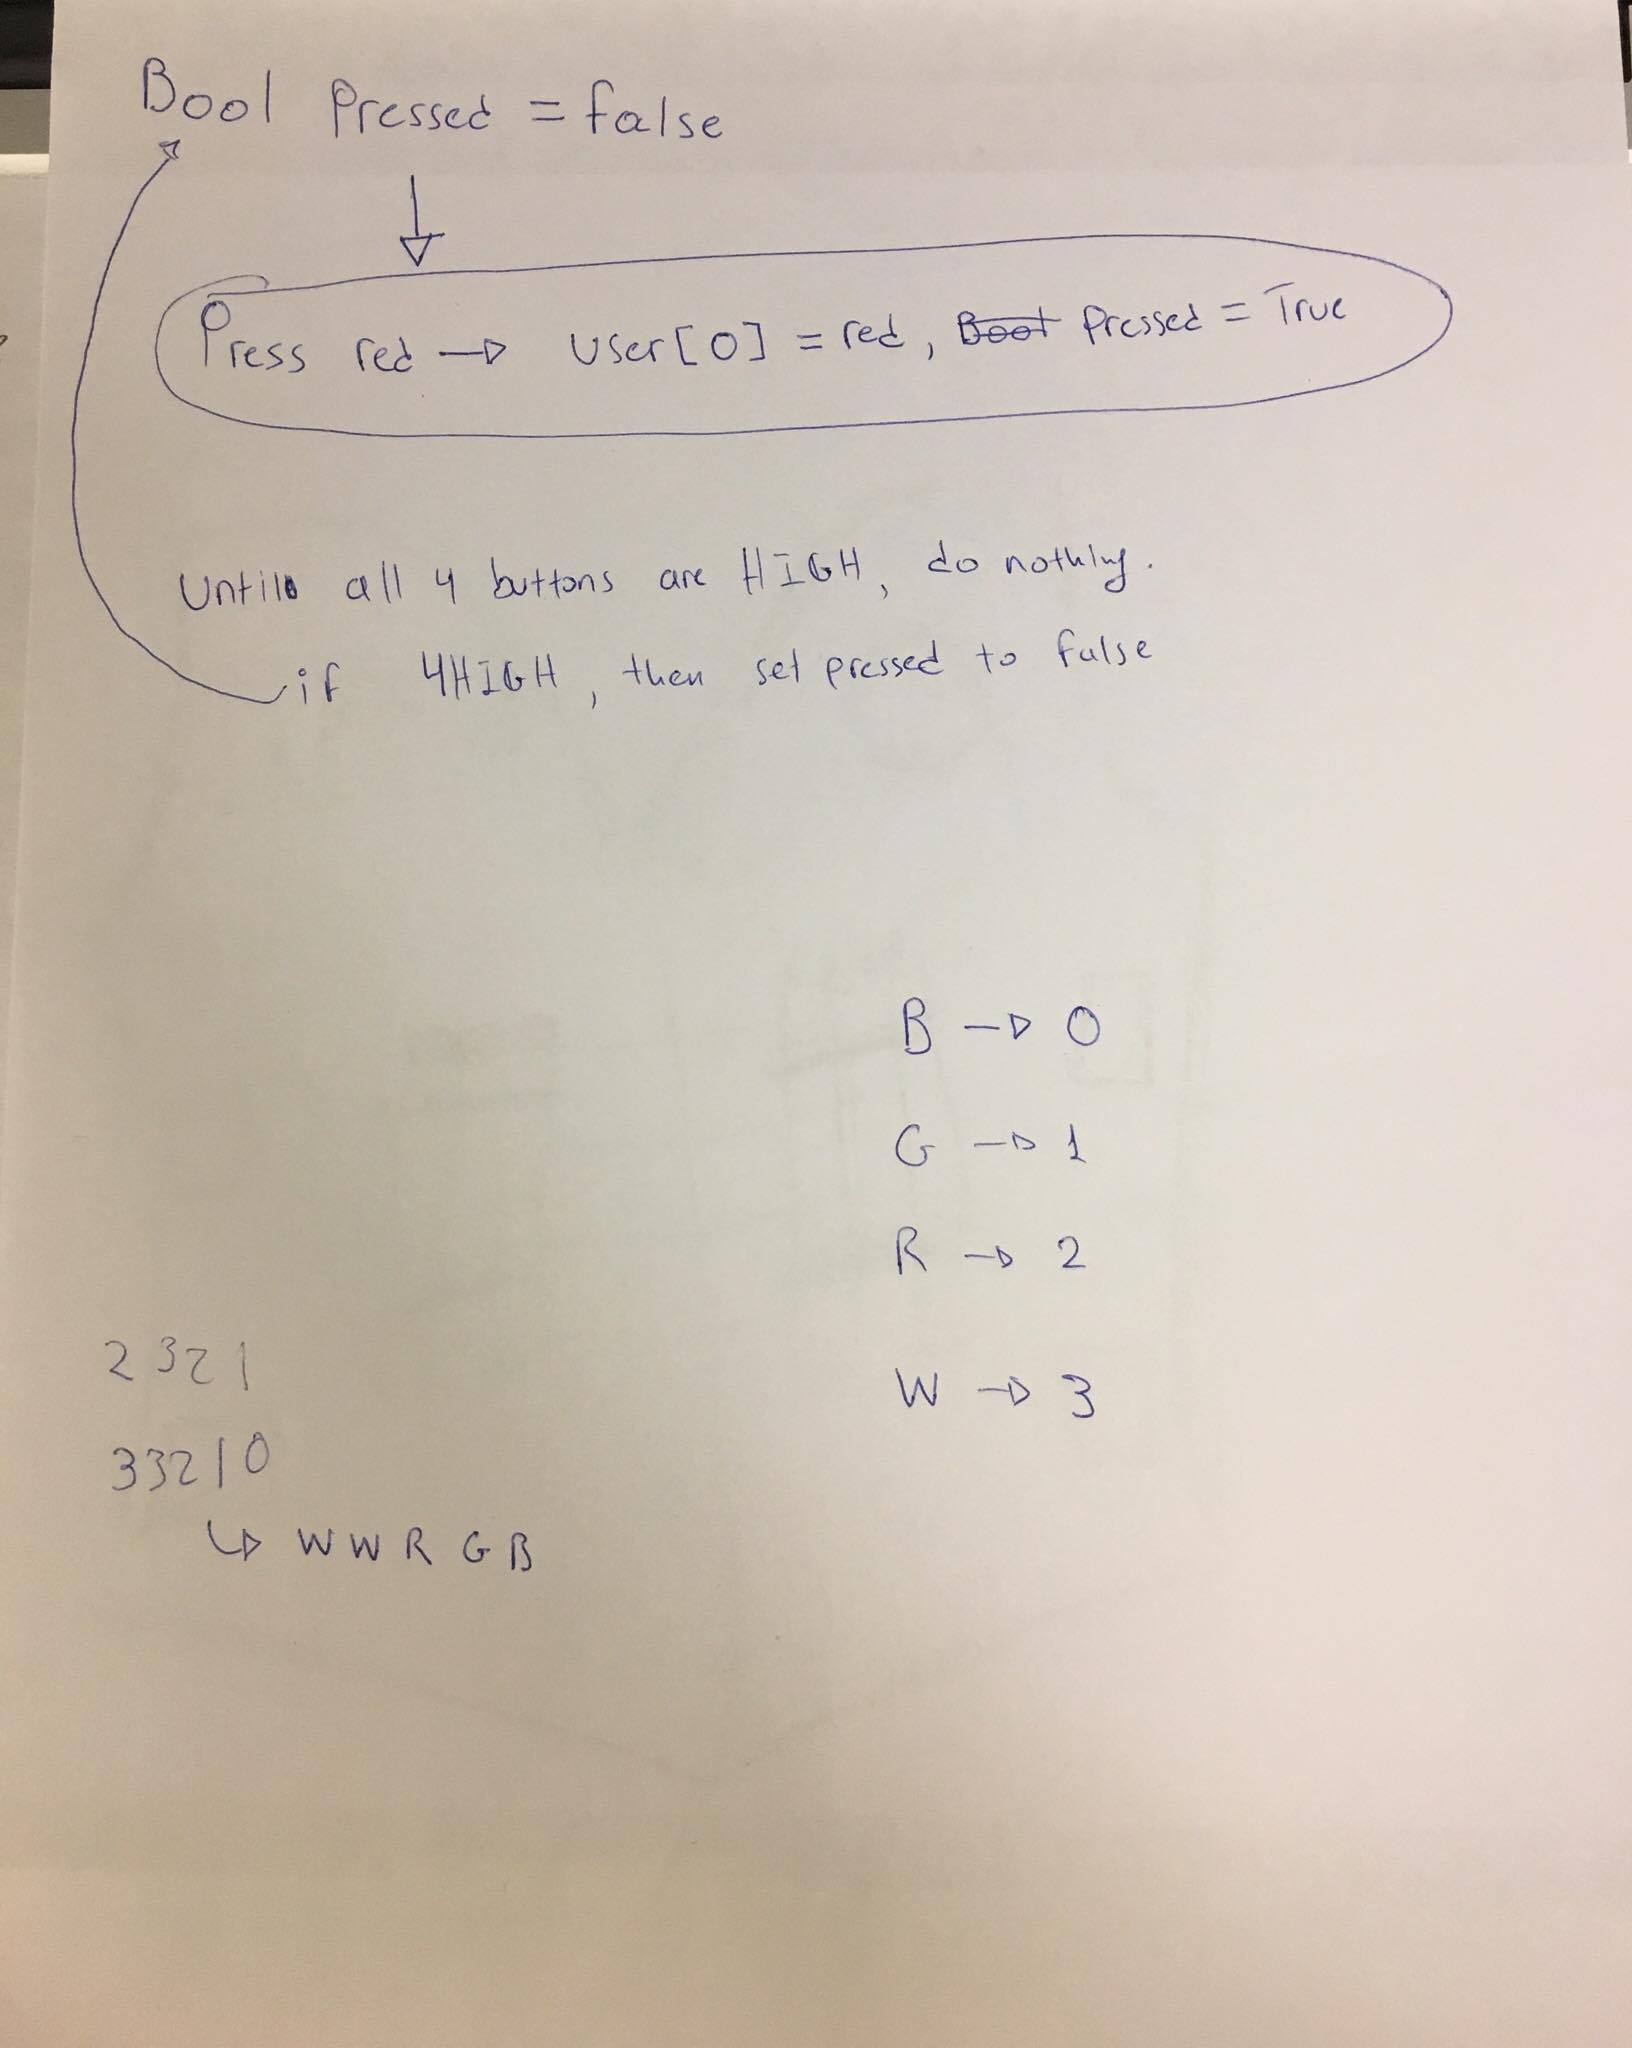 Bool Pressed = false
Press red → user[0] = red, Bool Pressed = True
Until all 4 buttons are HIGH, do nothing.
if 4HIGH, then set pressed to false
B → 0
G → 1
R → 2
W → 3
2321
33210
↳ WWRGB